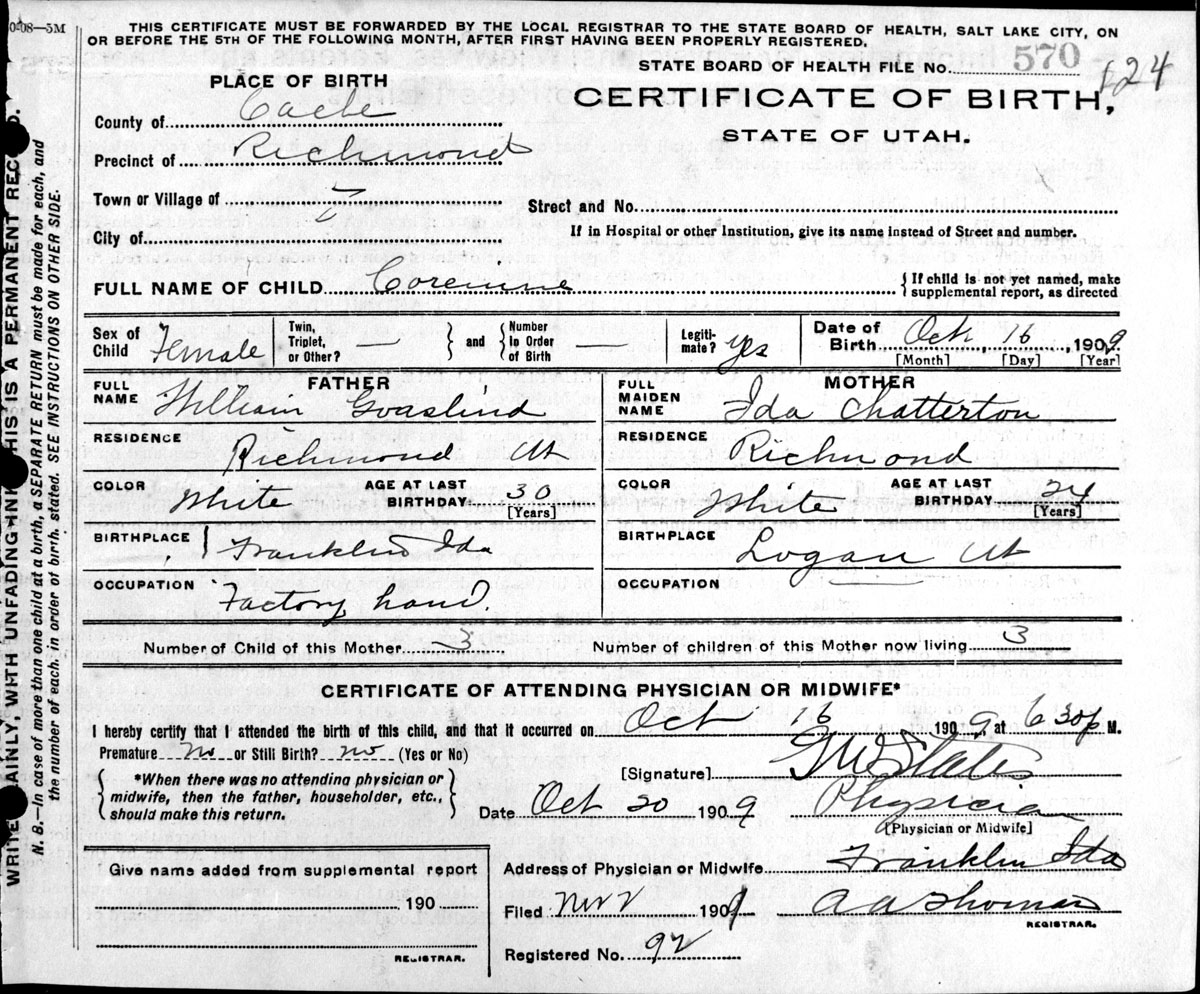 0-08—5M
THIS CERTIFICATE MUST BE FORWARDED BY THE LOCAL REGISTRAR TO THE STATE BOARD OF HEALTH, SALT LAKE CITY, ON
OR BEFORE THE 5TH OF THE FOLLOWING MONTH, AFTER FIRST HAVING BEEN PROPERLY REGISTERED.
STATE BOARD OF HEALTH FILE NO. 570 624
PLACE OF BIRTH
CERTIFICATE OF BIRTH,
STATE OF UTAH.
County of Cache
Precinct of Richmond
Town or Village of
Street and No.
City of
If in Hospital or other Institution, give its name instead of Street and number.
FULL NAME OF CHILD Coreinne { If child is not yet named, make
supplemental report, as directed
Sex of Child Female
Twin, Triplet, or Other? —
} and {
Number In Order of Birth —
Legiti-mate? yes
Date of Birth Oct 16, 1909
[Month] [Day] [Year]
FATHER
FULL NAME William Goaslind
RESIDENCE Richmond Ut
COLOR White AGE AT LAST BIRTHDAY 30 [Years]
BIRTHPLACE Franklin Ida
OCCUPATION Factory hand.
MOTHER
FULL MAIDEN NAME Ida Chatterton
RESIDENCE Richmond
COLOR White AGE AT LAST BIRTHDAY 24 [Years]
BIRTHPLACE Logan Ut
OCCUPATION —
Number of Child of this Mother 3 Number of children of this Mother now living 3
CERTIFICATE OF ATTENDING PHYSICIAN OR MIDWIFE*
I hereby certify that I attended the birth of this child, and that it occurred on Oct 16 1909, at 6 30 p M.
Premature no or Still Birth? no (Yes or No)
{ *When there was no attending physician or
midwife, then the father, householder, etc.,
should make this return. }
[Signature] G W States
Date Oct 20 1909 Physician
[Physician or Midwife]
Give name added from supplemental report
190
REGISTRAR.
Address of Physician or Midwife Franklin Ida
Filed Nov 2 1909 A A Thomas
REGISTRAR.
Registered No. 92
WRITE PLAINLY, WITH UNFADING INK THIS IS A PERMANENT RECORD.
N. B.—In case of more than one child at a birth, a SEPARATE RETURN must be made for each, and
the number of each, in order of birth, stated. SEE INSTRUCTIONS ON OTHER SIDE.